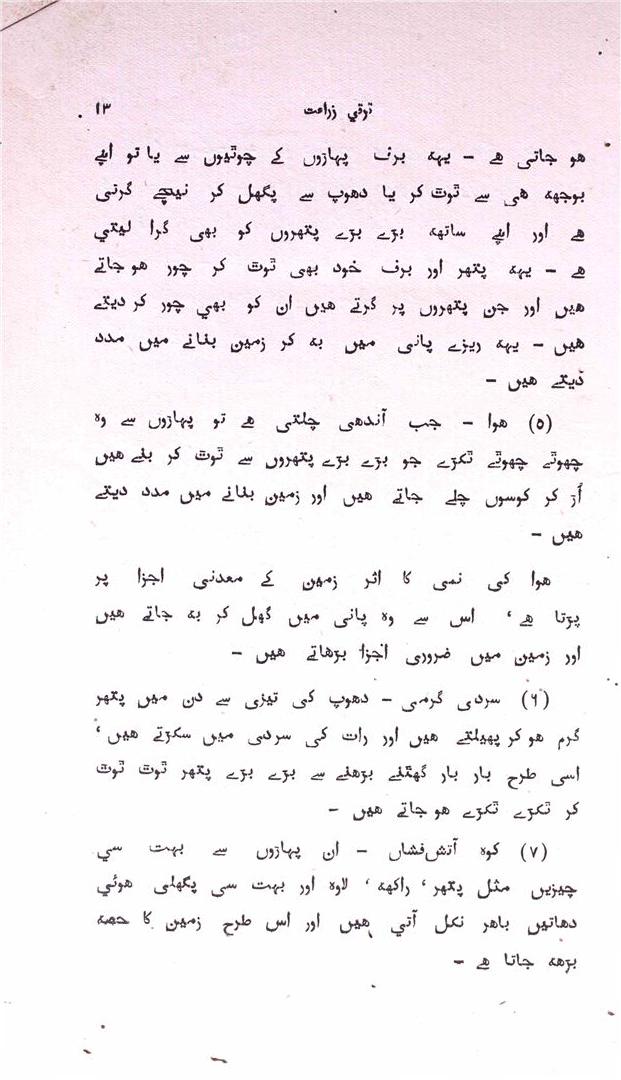 ترقي زراعت ۱۳
هو جاتی هے – یهه برف پهاڑوں کے چوٹیوں سے یا تو اپنے
بوجهه هی سے ٹوٹ کر یا دهوپ سے پگهل کر نیچے گرتی
هے اور اپنے ساتهه بڑے بڑے پتهروں کو بهی گرا لیتي
هے – یهه پتهر اور برف خود بهی ٹوٹ کر چور هو جاتے
هیں اور جن پتهروں پر گرتے هیں ان کو بهي چور کر دیتے
هیں – یهه ریزے پانی میں به کر زمین بنانے میں مدد
دیتے هیں –
(۵) هوا – جب آندهی چلتی هے تو پهاڑوں سے وه
چهوٹے چهوٹے ٹکڑے جو بڑے بڑے پتهروں سے ٹوٹ کر بنے هیں
اُڑ کر کوسوں چلے جاتے هیں اور زمین بنانے میں مدد دیتے
هیں –
هوا کی نمی کا اثر زمین کے معدنی اجزا پر
پڑتا هے ' اس سے وه پانی میں گهل کر به جاتے هیں
اور زمین میں ضروری اجزا بڑهاتے هیں –
(۶) سردی گرمی – دهوپ کی تیزی سے دن میں پتهر
گرم هو کر پهیلتے هیں اور رات کی سردی میں سکڑتے هیں '
اسی طرح بار بار گهٹنے بڑهنے سے بڑے بڑے پتهر ٹوٹ ٹوٹ
کر ٹکڑے ٹکڑے هو جاتے هیں –
(۷) کوه آتش‌فشاں – ان پهاڑوں سے بہت سي
چیزیں مثل پتهر ' راکهه ' لاوه اور بہت سی پگهلی هوئي
دهاتیں باهر نکل آتي هیں اور اس طرح زمین کا حصه
بڑهه جاتا هے –